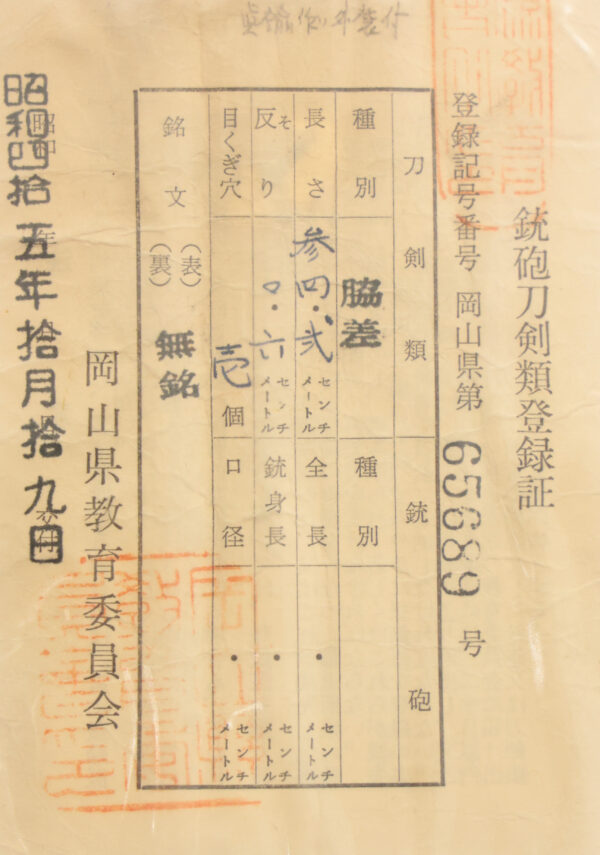 銃砲刀剣類登録証
登録記号番号 岡山県第 65689 号
刀剣類 銃砲
種別 脇差 種別
長さ 参四・弐 センチメートル 全長 ・ センチメートル
反り そ 〇・六 センチメートル 銃身長 ・ センチメートル
目くぎ穴 壱 個 口径 ・ センチメートル
銘文 (表) (裏) 無銘
岡山県教育委員会
昭和四拾五年拾月拾九日 交付